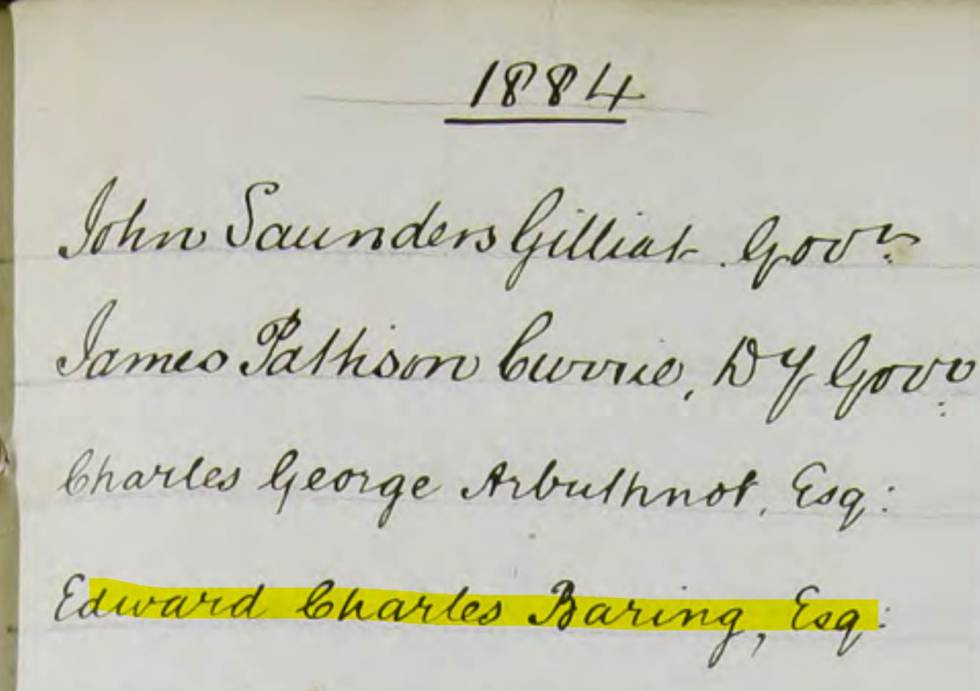 1884
John Saunders Gilliat Govr.
James Pattison Currie, Dy Govr.
Charles George Arbuthnot, Esq:
Edward Charles Baring, Esq: